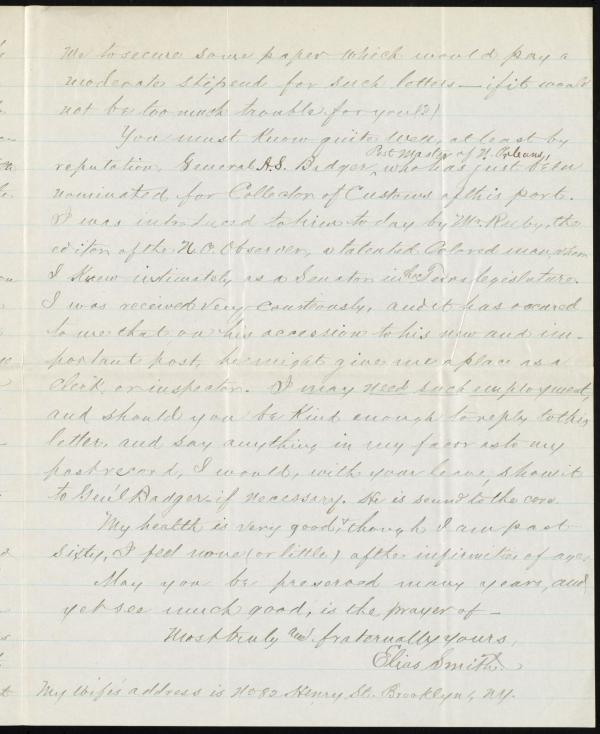 me to secure some paper which would pay a
moderate stipend for such letters—if it would
not be too much trouble for you(?)
You must know quite well, at least by
Post Master of N. Orleans,
reputation, General A.S. Badger, who has just been
nominated for Collector of Customs of this port.
I was introduced to him to day by Mr. Ruby, the
editor of the N.O. Observer, a talented Colored man, whom
I knew intimately as a Senator in the Texas legislature.
I was received very courteously, and it has occured
to me that, on his accession to his new and im-
portant post, he might give me a place as a
clerk, or inspector. I may need such employment,
and should you be kind enough to reply to this
letter, and say anything in my favor as to my
past record, I would, with your leave, show it
to Gen'l Badger if necessary. He is sound to the core.
My health is very good, though I am past
sixty, I feel none (or little) of the infirmities of age.
May you be preserved many years, and
yet see much good, is the prayer of—
Most truly and fraternally yours,
Elias Smith.
My wife's address is No 82 Henry St. Brooklyn, NY.